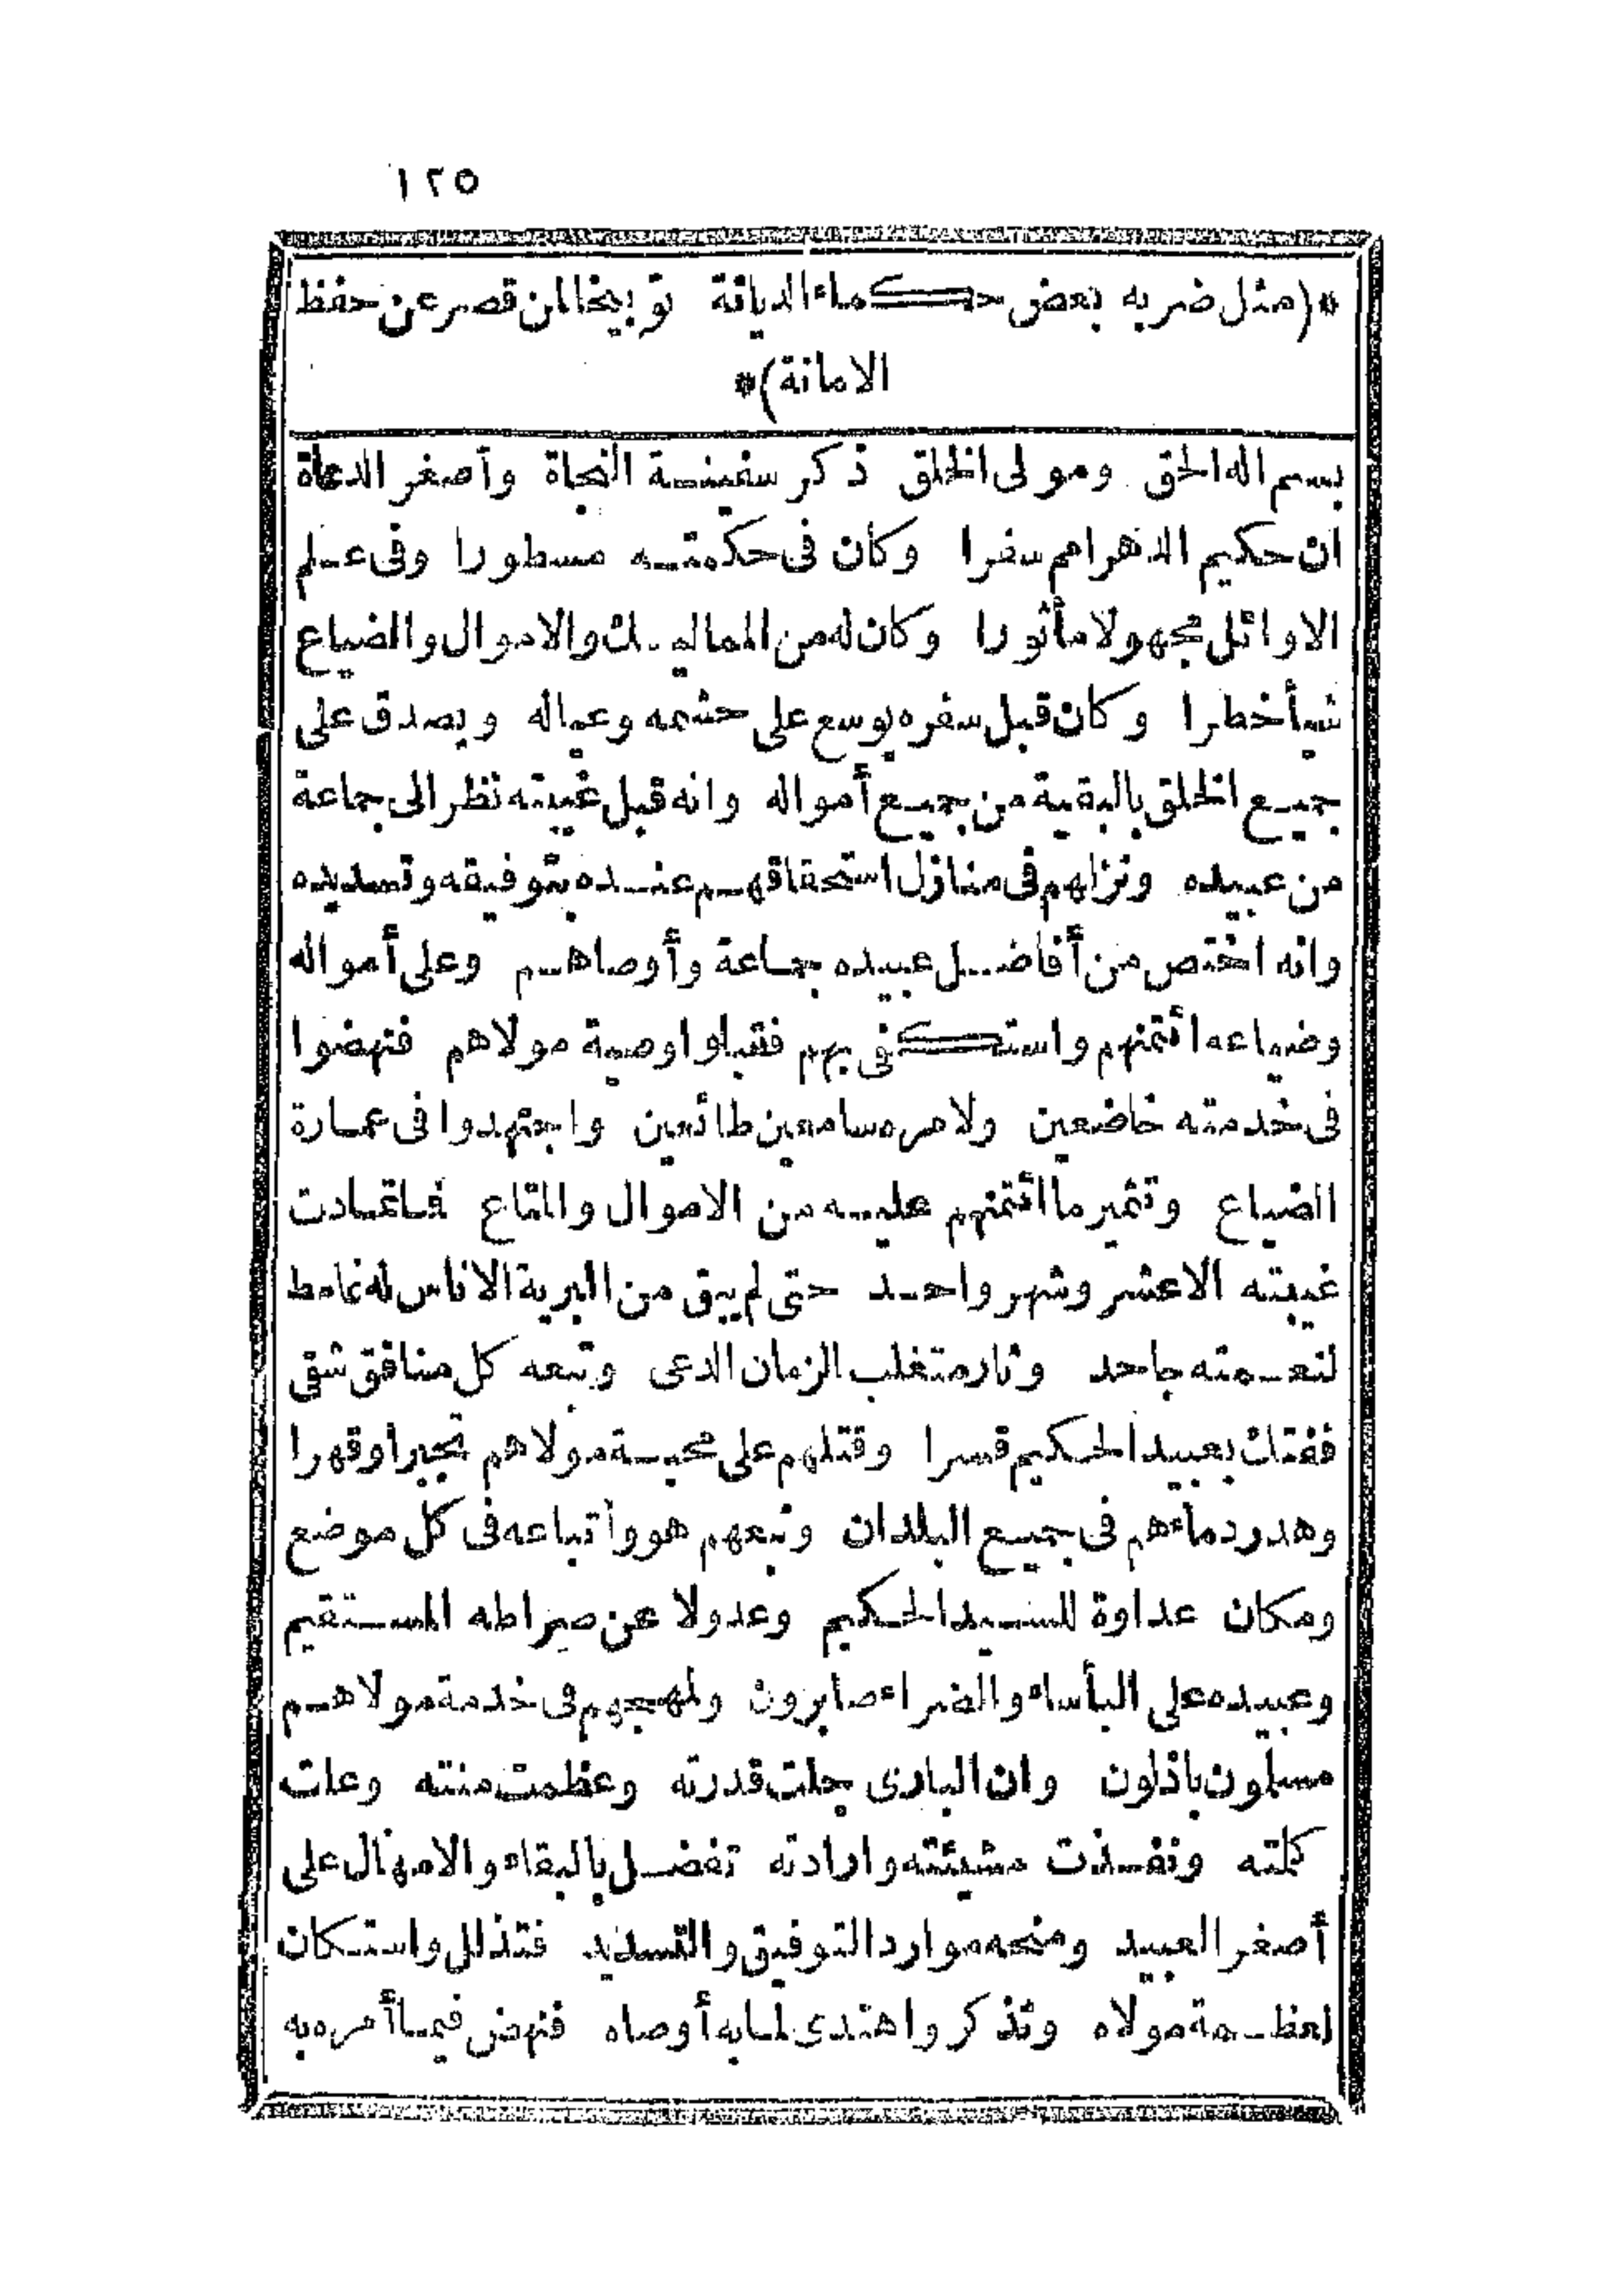 ١٢٥
*(مثل ضربه بعض حكماء الديانة توبيخا لمن قصر عن حفظ
الامانة)*
بسم اله الحق ومولى الخلق ذكر سفينة النجاة وأصغر الدعاة
ان حكيم الدهر ام سفرا وكان فى حكمته مسطورا وفى علم
الاوائل مجهولا مأثورا وكان له من المماليك والاموال والضياع
شيأ خطرا وكان قبل سفره يوسع على حشمه وعياله ويصدق على
جميع الخلق بالبقية من جميع أمواله وانه قبل غيبته نظر الى جماعة
من عبيده ونزلهم فى منازل استحقاقهم عنده بتوفيقه وتسديده
وانه اختص من أفاضل عبيده جماعة وأوصاهم وعلى أمواله
وضياعه ائتمنهم واستكفى بهم فقبلوا وصية مولاهم فنهضوا
فى خدمته خاضعين ولامره سامعين طائعين واجتهدوا فى عمارة
الضياع وتثمير ما ائتمنهم عليه من الاموال والمتاع فاتمادت
غيبته الا عشر وشهر واحد حتى لم يبق من البرية الا ناس له غامط
لنعمته جاحد وثار متغلب الزمان الدعى وتبعه كل منافق شقى
ففتك بعبيد الحكيم قسرا وقتلهم على محبة مولاهم تجبرا وقهرا
وهدر دماءهم فى جميع البلدان وتبعهم هو وأتباعه فى كل موضع
ومكان عداوة للسيد الحكيم وعدولا عن صراطه المستقيم
وعبيده على البأساء والضراء صابرون ولمهجهم فى خدمة مولاهم
مسلون باذلون وان البارى جلت قدرته وعظمت منته وعلت
كلمته ونفذت مشيئته وارادته تفضل بالبقاء والامهال على
أصغر العبيد ومنحه موارد التوفيق والتسديد فتذلل واستكان
لعظمة مولاه وتذكر واهتدى لما به أوصاه فنهض فيما أمره به